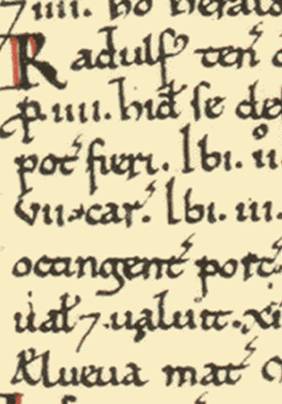 ⁊ iiii. bo
Radulf' ten'
p. iiii. hid' se de
pot' fieri. Ibi. ii
vii. car'. Ibi. iii.
octingent' porc'
ual' ⁊ ualuit. xi
Ælueua mat'